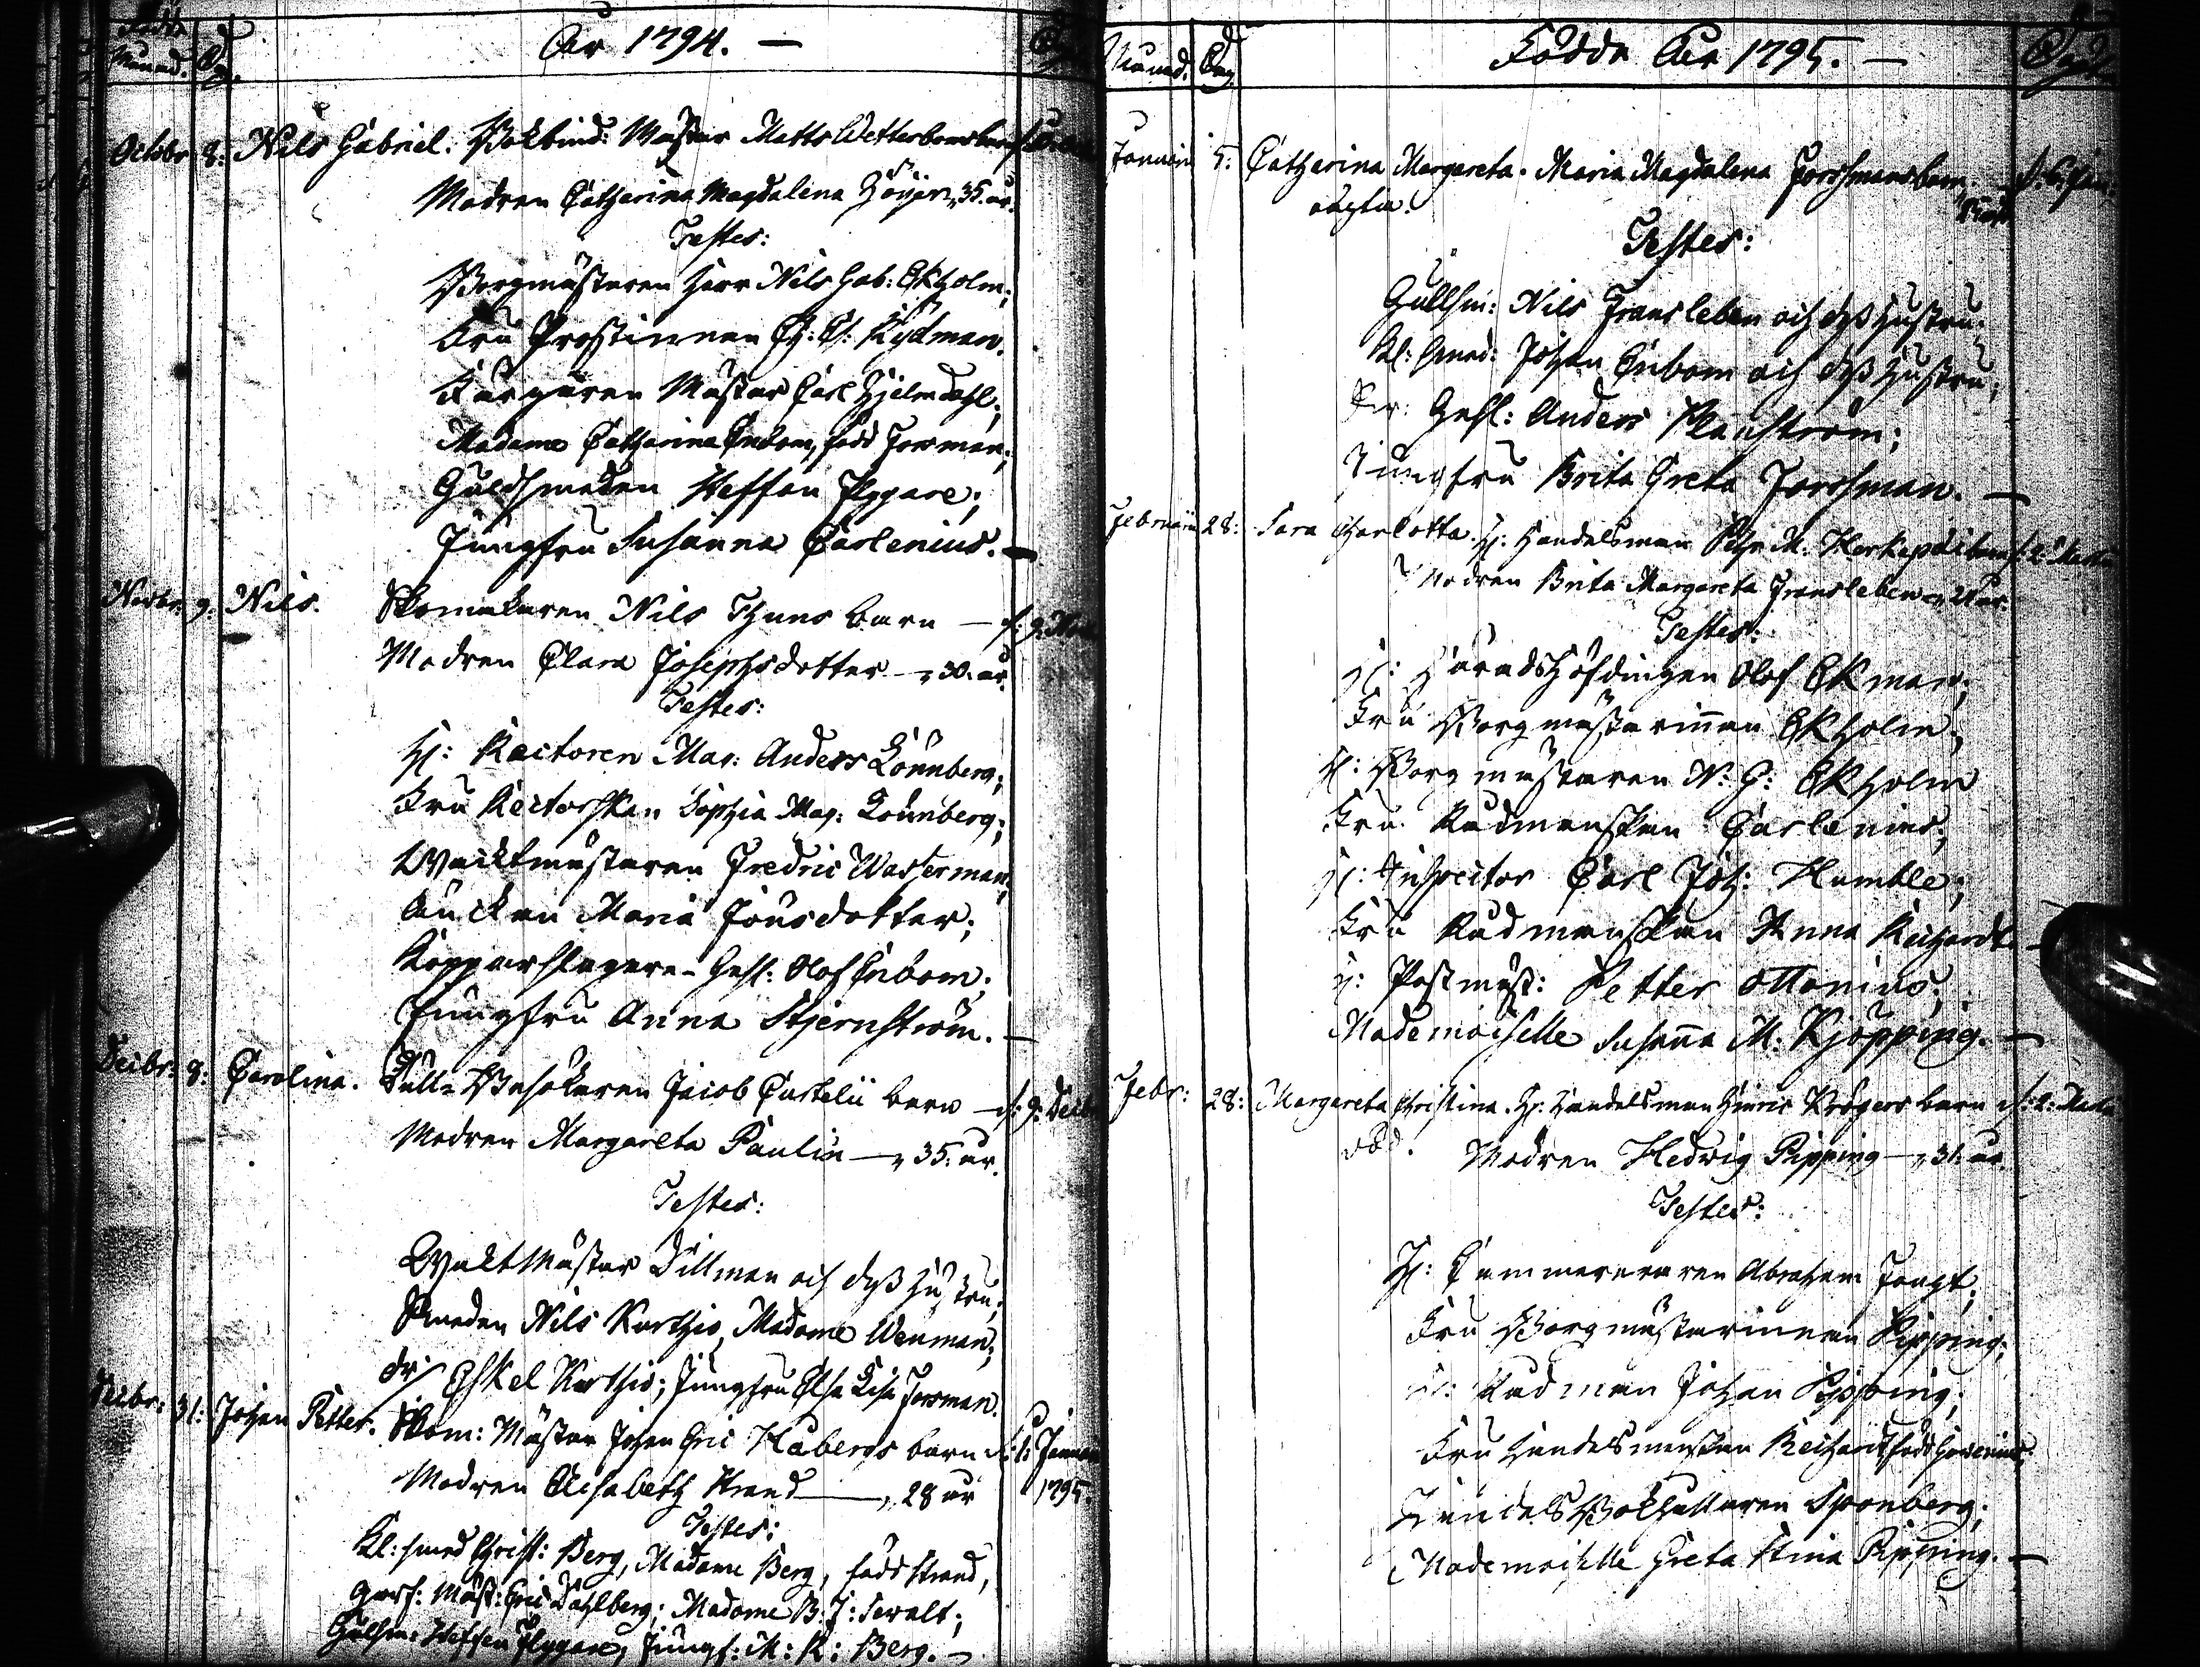 Född
Månad. Dag.
Åhr 1794. —
Octobr 8: Nils Gabriel. Bokbind: Mäster Matts Wetterboms barn
Modren Catharina Magdalena Höijer, 35. år.
Testes:
Borgmästaren Herr Nils Gab: Ekholm;
Fru Prostinnan Ch: Ch: Rydman.
Färgaren Mäster Carl Hjelmdahl;
Madame Catharina Enbom, född Forsman;
Guldsmeden Steffan Flygare;
Jungfru Susanna Carlenius. —
Novbr. 9. Nils. Skomakaren Nils Thuns barn — d: 9: Nov
Modren Clara Josephsdotter — 30. år.
Testes:
H: Rectoren Mag: Anders Lönnberg;
Fru Rectorskan Sophia Mag: Lönnberg;
Wacktmästaren Fredric Wasserman;
Änckan Maria Jönsdotter;
Kopparslagare-Gesl: Olof Enbom;
Jungfru Anna Stjernström. —
Decbr: 8: Carolina. Tull-Besökaren Jacob Castelii barn — d: 9: Decbr
Modren Margareta Paulin — 35: år.
Testes:
Waktmäster Dillman och dess Hustru;
Smeden Nils Karthio, Madame Wenman;
Dr: Eskel Karthio; Jungfru Elsa Lisa Forsman.
Decbr: 31: Johan Petter. Skom: Mäster Johan Eric Habergs barn d: 1: Januari
Modren Elisabeth Strand — 28 år 1795.
Testes:
Kl: smed Christ: Berg, Madame Berg, född Strand,
Garf: Mäst: Eric Dahlberg; Madame B: J: Sevalt;
Gulsm: Steffan Flygare, Jungf: M: K: Berg. —
Månad. Dag
Födde Åhr 1795. —
Januarii 5: Catharina Margareta. Maria Magdalena Forssmans barn. — d: 6: Jan.
oägta.
Testes:
Gullsm: Nils Fransleben och dess Hustru;
Kl: smed: Johan Enbom och dess Hustru;
Gesl: Anders Planström;
Jungfru Brita Greta Forssman. —
Februarii 28: Sara Charlotta. H: Handelsman Pehr M. Herkepæi barn d: 2: Martii
Modren Brita Margareta Fransleben
Testes:
H: Häradshöfdingen Olof Ekman;
Fru Borgmästarinnan Ekholm;
H: Borgmästaren N: G: Ekholm
Fru Rådmanskan Carlenius;
H: Inspector Carl Joh: Humble;
Fru Rådmanskan Anna Reichardt —
H: Postmäst: Petter Ottonius;
Mademoiselle Susanna M. Kjöpping. —
Febr: 28: Margareta Christina. H: Handelsman Hinric Krögers barn d: 2: Martii
död. Modren Hedwig Pipping — 31. år.
Testes:
H: Cammereraren Abraham Fougt;
Fru Borgmästarinnan Pipping;
H: Rådman Johan Pipping;
Fru Handelsmanskan Reichardt född
Handels Bokhållaren Sponberg;
Mademoiselle Greta Stina Pipping. —